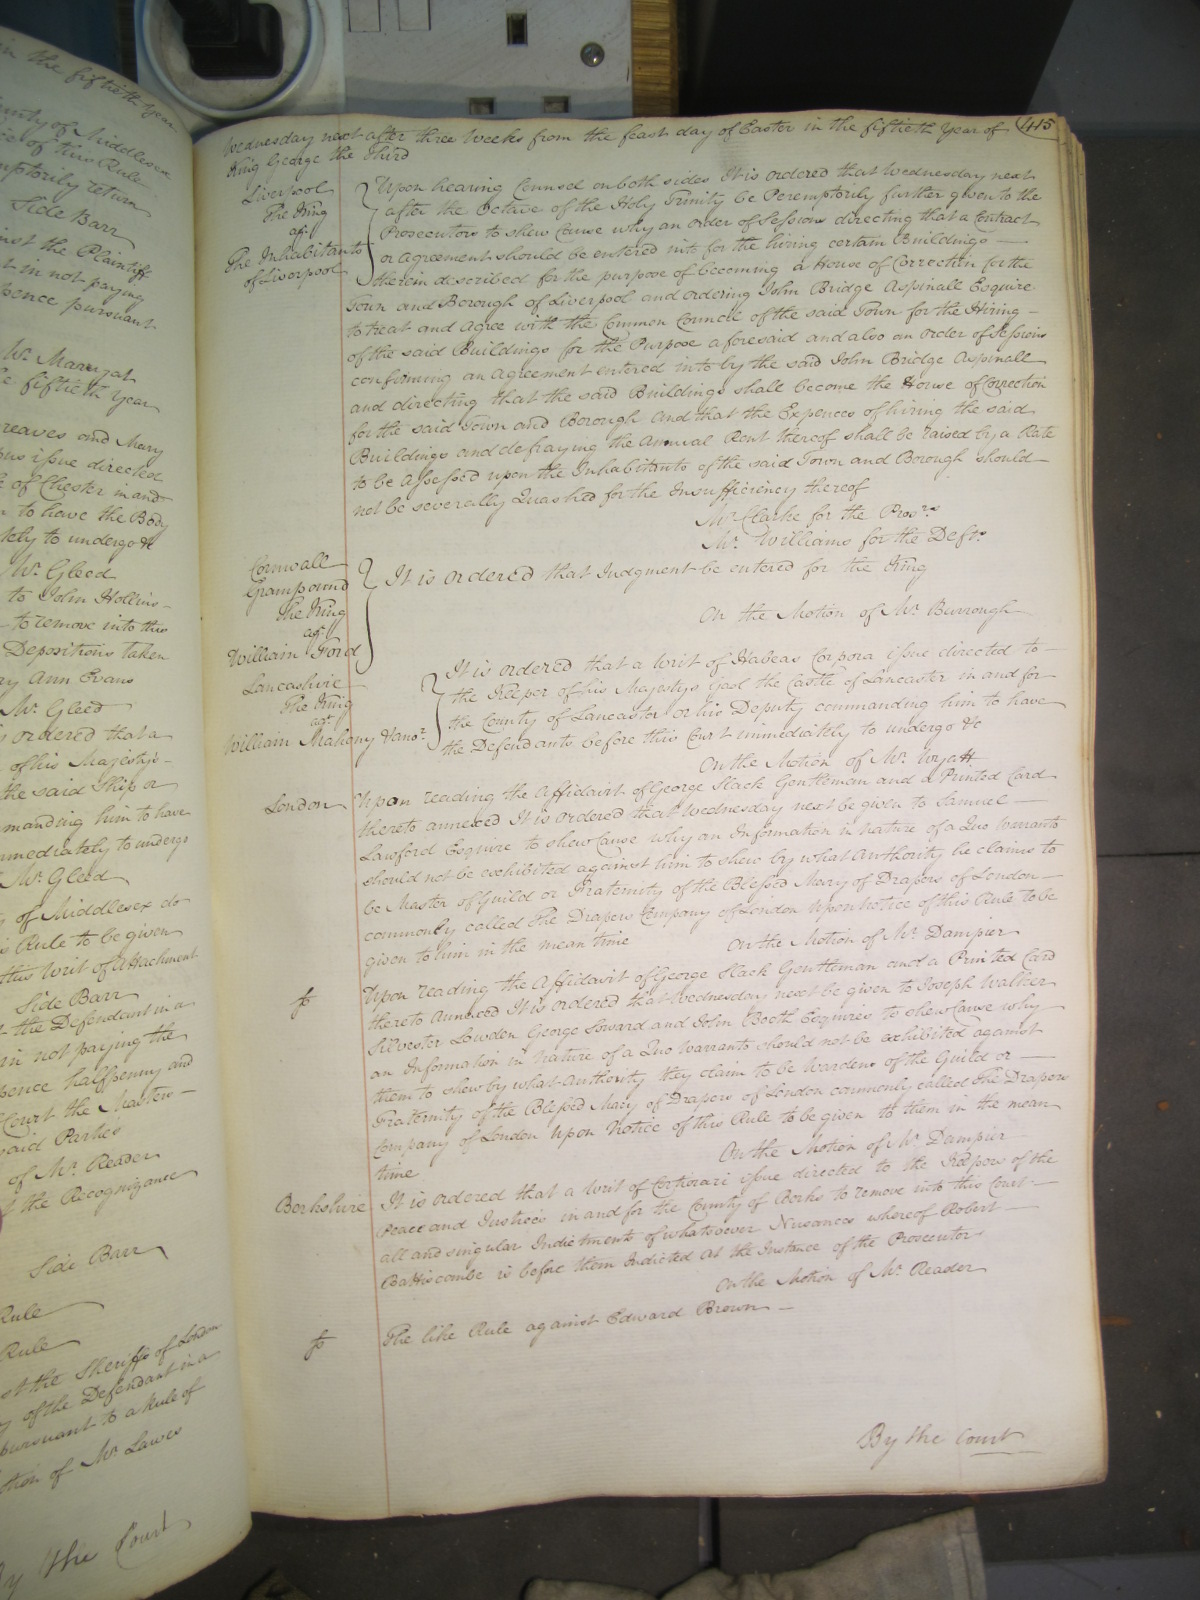 in the fiftieth Year
County of Middlesex
of this Rule
peremptorily return
Side Barr
against the Plaintiff
in not paying
pence pursuant
Mr. Marryat
the fiftieth Year
and Mary
issue directed
of Chester in and
to have the Body
to undergo &c
Mr. Gleed
to John Hollins
to remove into this
Depositions taken
Mary Ann Evans
Mr. Gleed
is ordered that a
of his Majesty's
the said Ship or
commanding him to have
immediately to undergo
Mr. Gleed
of Middlesex do
Rule to be given
this Writ of Attachment
Side Barr
the Defendant in a
in not paying the
pence halfpenny and
Court the Masters
said Parties
of Mr. Reader
the Recognizance
Side Barr
Rule
Rule
the Sheriffs of London
of the Defendant in a
pursuant to a Rule of
Motion of Mr. Lawes
By the Court
Wednesday next after three Weeks from the feast day of Easter in the fiftieth Year of 415
King George the Third
Liverpool
The King
agt.
The Inhabitants
of Liverpool
Upon hearing Counsel on both sides It is ordered that Wednesday next
after the Octave of the Holy Trinity be Peremptorily further given to the
Prosecutors to shew Cause why an order of Sessions directing that a Contract
or agreement should be entered into for the hiring certain Buildings
therein described for the purpose of becoming a House of Correction for the
Town and Borough of Liverpool and ordering John Bridge Aspinall Esquire
to treat and agree with the Common Council of the said Town for the Hiring
of the said Buildings for the Purpose aforesaid and also an order of Sessions
confirming an Agreement entered into by the said John Bridge Aspinall
and directing that the said Buildings shall become the House of Correction
for the said Town and Borough And that the Expences of hiring the said
Buildings and defraying the Annual Rent thereof shall be raised by a Rate
to be Assessed upon the Inhabitants of the said Town and Borough should
not be severally Quashed for the Insufficiency thereof
Mr. Clarke for the Prosrs.
Mr. Williams for the Defts.
Cornwall
Grampound
The King
agt.
William Ford
It is ordered that Judgment be entered for the King
On the Motion of Mr. Burrough
Lancashire
The King
agt.
William Mahony & anor.
It is ordered that a Writ of Habeas Corpora issue directed to
the Keeper of his Majestys Gaol the Castle of Lancaster in and for
the County of Lancaster or his Deputy commanding him to have
the Defendants before this Court immediately to undergo &c
On the Motion of Mr. Wyatt
London Upon reading the Affidavit of George Slack Gentleman and a Printed Card
thereto annexed It is ordered that Wednesday next be given to Samuel
Lawford Esquire to shew Cause why an Information in Nature of a Quo Warranto
should not be exhibited against him to shew by what Authority he claims to
be Master of Guild or Fraternity of the Blessed Mary of Drapers of London
commonly called The Drapers Company of London Upon Notice of this Rule to be
given to him in the mean time On the Motion of Mr. Dampier
So Upon reading the Affidavit of George Slack Gentleman and a Printed Card
thereto Annexed It is ordered that Wednesday next be given to Joseph Walker
Silvester Lowden George Soward and John Booth Esquires to shew Cause why
an Information in Nature of a Quo Warranto should not be exhibited against
them to shew by what Authority they claim to be Wardens of the Guild or
Fraternity of the Blessed Mary of Drapers of London commonly called The Drapers
Company of London Upon Notice of this Rule to be given to them in the mean
time On the Motion of Mr. Dampier
Berkshire It is ordered that a Writ of Certiorari issue directed to the Keepers of the
Peace and Justices in and for the County of Berks to remove into this Court
all and singular Indictments of whatsoever Nusances whereof Robert
Battiscombe is before them Indicted At the Instance of the Prosecutor
On the Motion of Mr. Reader
So The like Rule against Edward Brown
By the Court